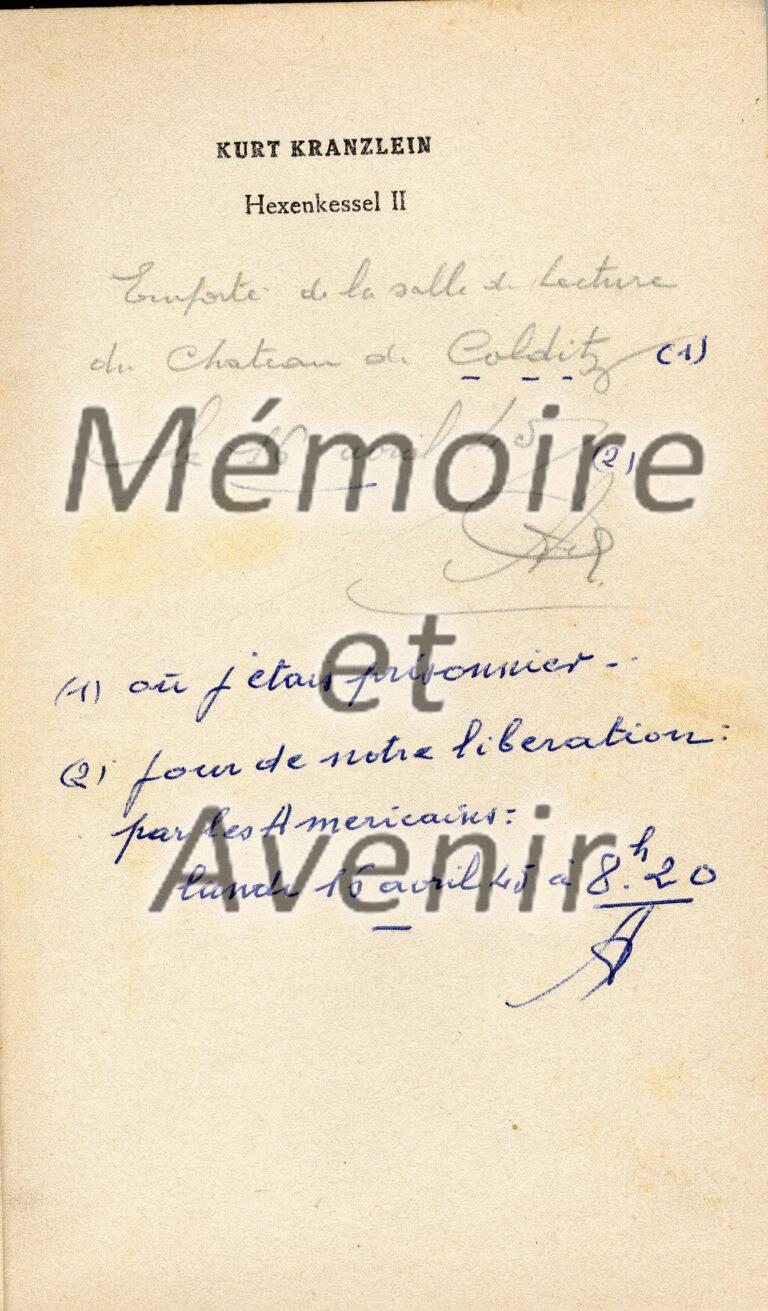 KURT KRANZLEIN
Hexenkessel II
Emporté de la salle de Lecture
du Chateau de Colditz (1)
le 16 avril 45 (2)
Mémoire
et
Avenir
(1) où j'étais prisonnier..
(2) jour de notre libération:
par les Americains:
lundi 16 avril 45 à 8.h20